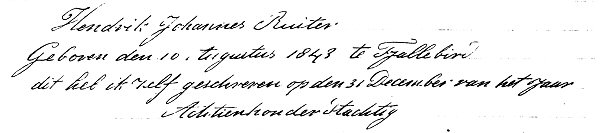 Hendrik Johannes Ruiter
Geboren den 10. Augustus 1843 te Tjallebird
dit heb ik zelf geschreven op den 31 December van het Jaar
Achtienhonder Tachtig